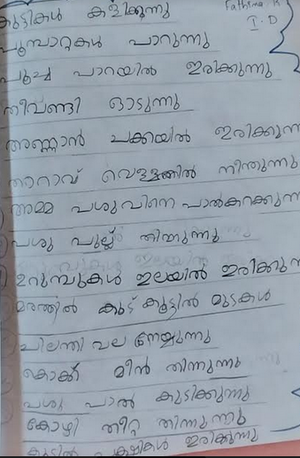 കുട്ടികൾ കളിക്കുന്നു
Fathima K
I.D
പൂമ്പാറ്റകൾ പാറുന്നു
പൂച്ച പാറയിൽ ഇരിക്കുന്നു
തീവണ്ടി ഓടുന്നു
അണ്ണാൻ ചക്കയിൽ ഇരിക്കുന്നു
താറാവ് വെള്ളത്തിൽ നീന്തുന്നു
അമ്മ പശുവിനെ പാൽകറക്കുന്നു
പശു പുല്ല് തിന്നുന്നു
ഉറുമ്പുകൾ ഇലയിൽ ഇരിക്കുന്നു
മരത്തിൽ കൂട് കൂട്ടിൽ മുട്ടകൾ
ചിലന്തി വല നെയ്യുന്നു
കൊക്ക് മീൻ തിന്നുന്നു
പശു പാൽ കുടിക്കുന്നു
കോഴി തീറ്റ തിന്നുന്നു
കൂട്ടിൽ പക്ഷികൾ ഇരിക്കുന്നു